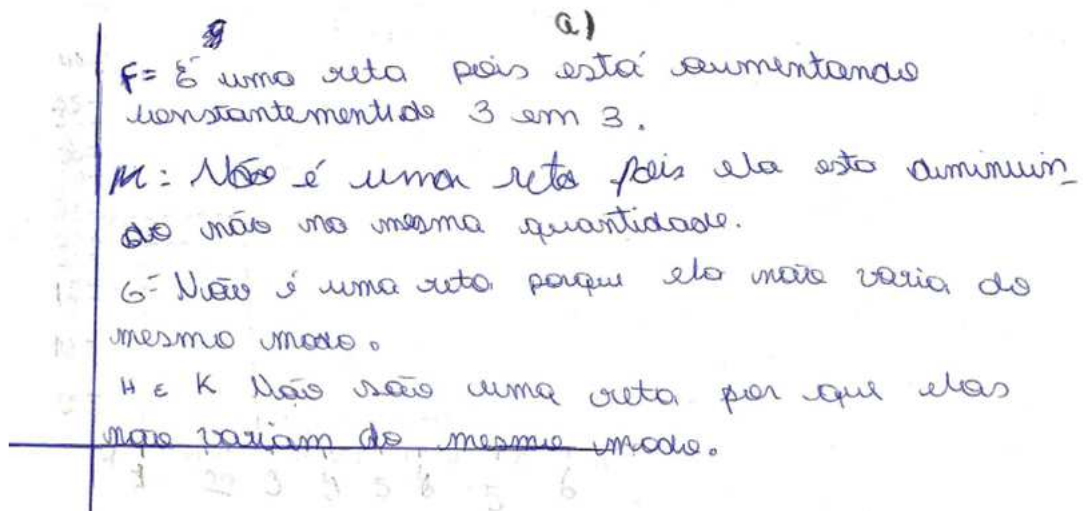 a)
F= É uma reta pois está aumentando
constantementide 3 em 3.
M: Não é uma reta pois ela esta diminuin_
do não na mesma quantidade.
G= Não é uma reta porque ela não varia do
mesmo modo.
H e K Não são uma reta por que elas
não variam do mesmo modo.